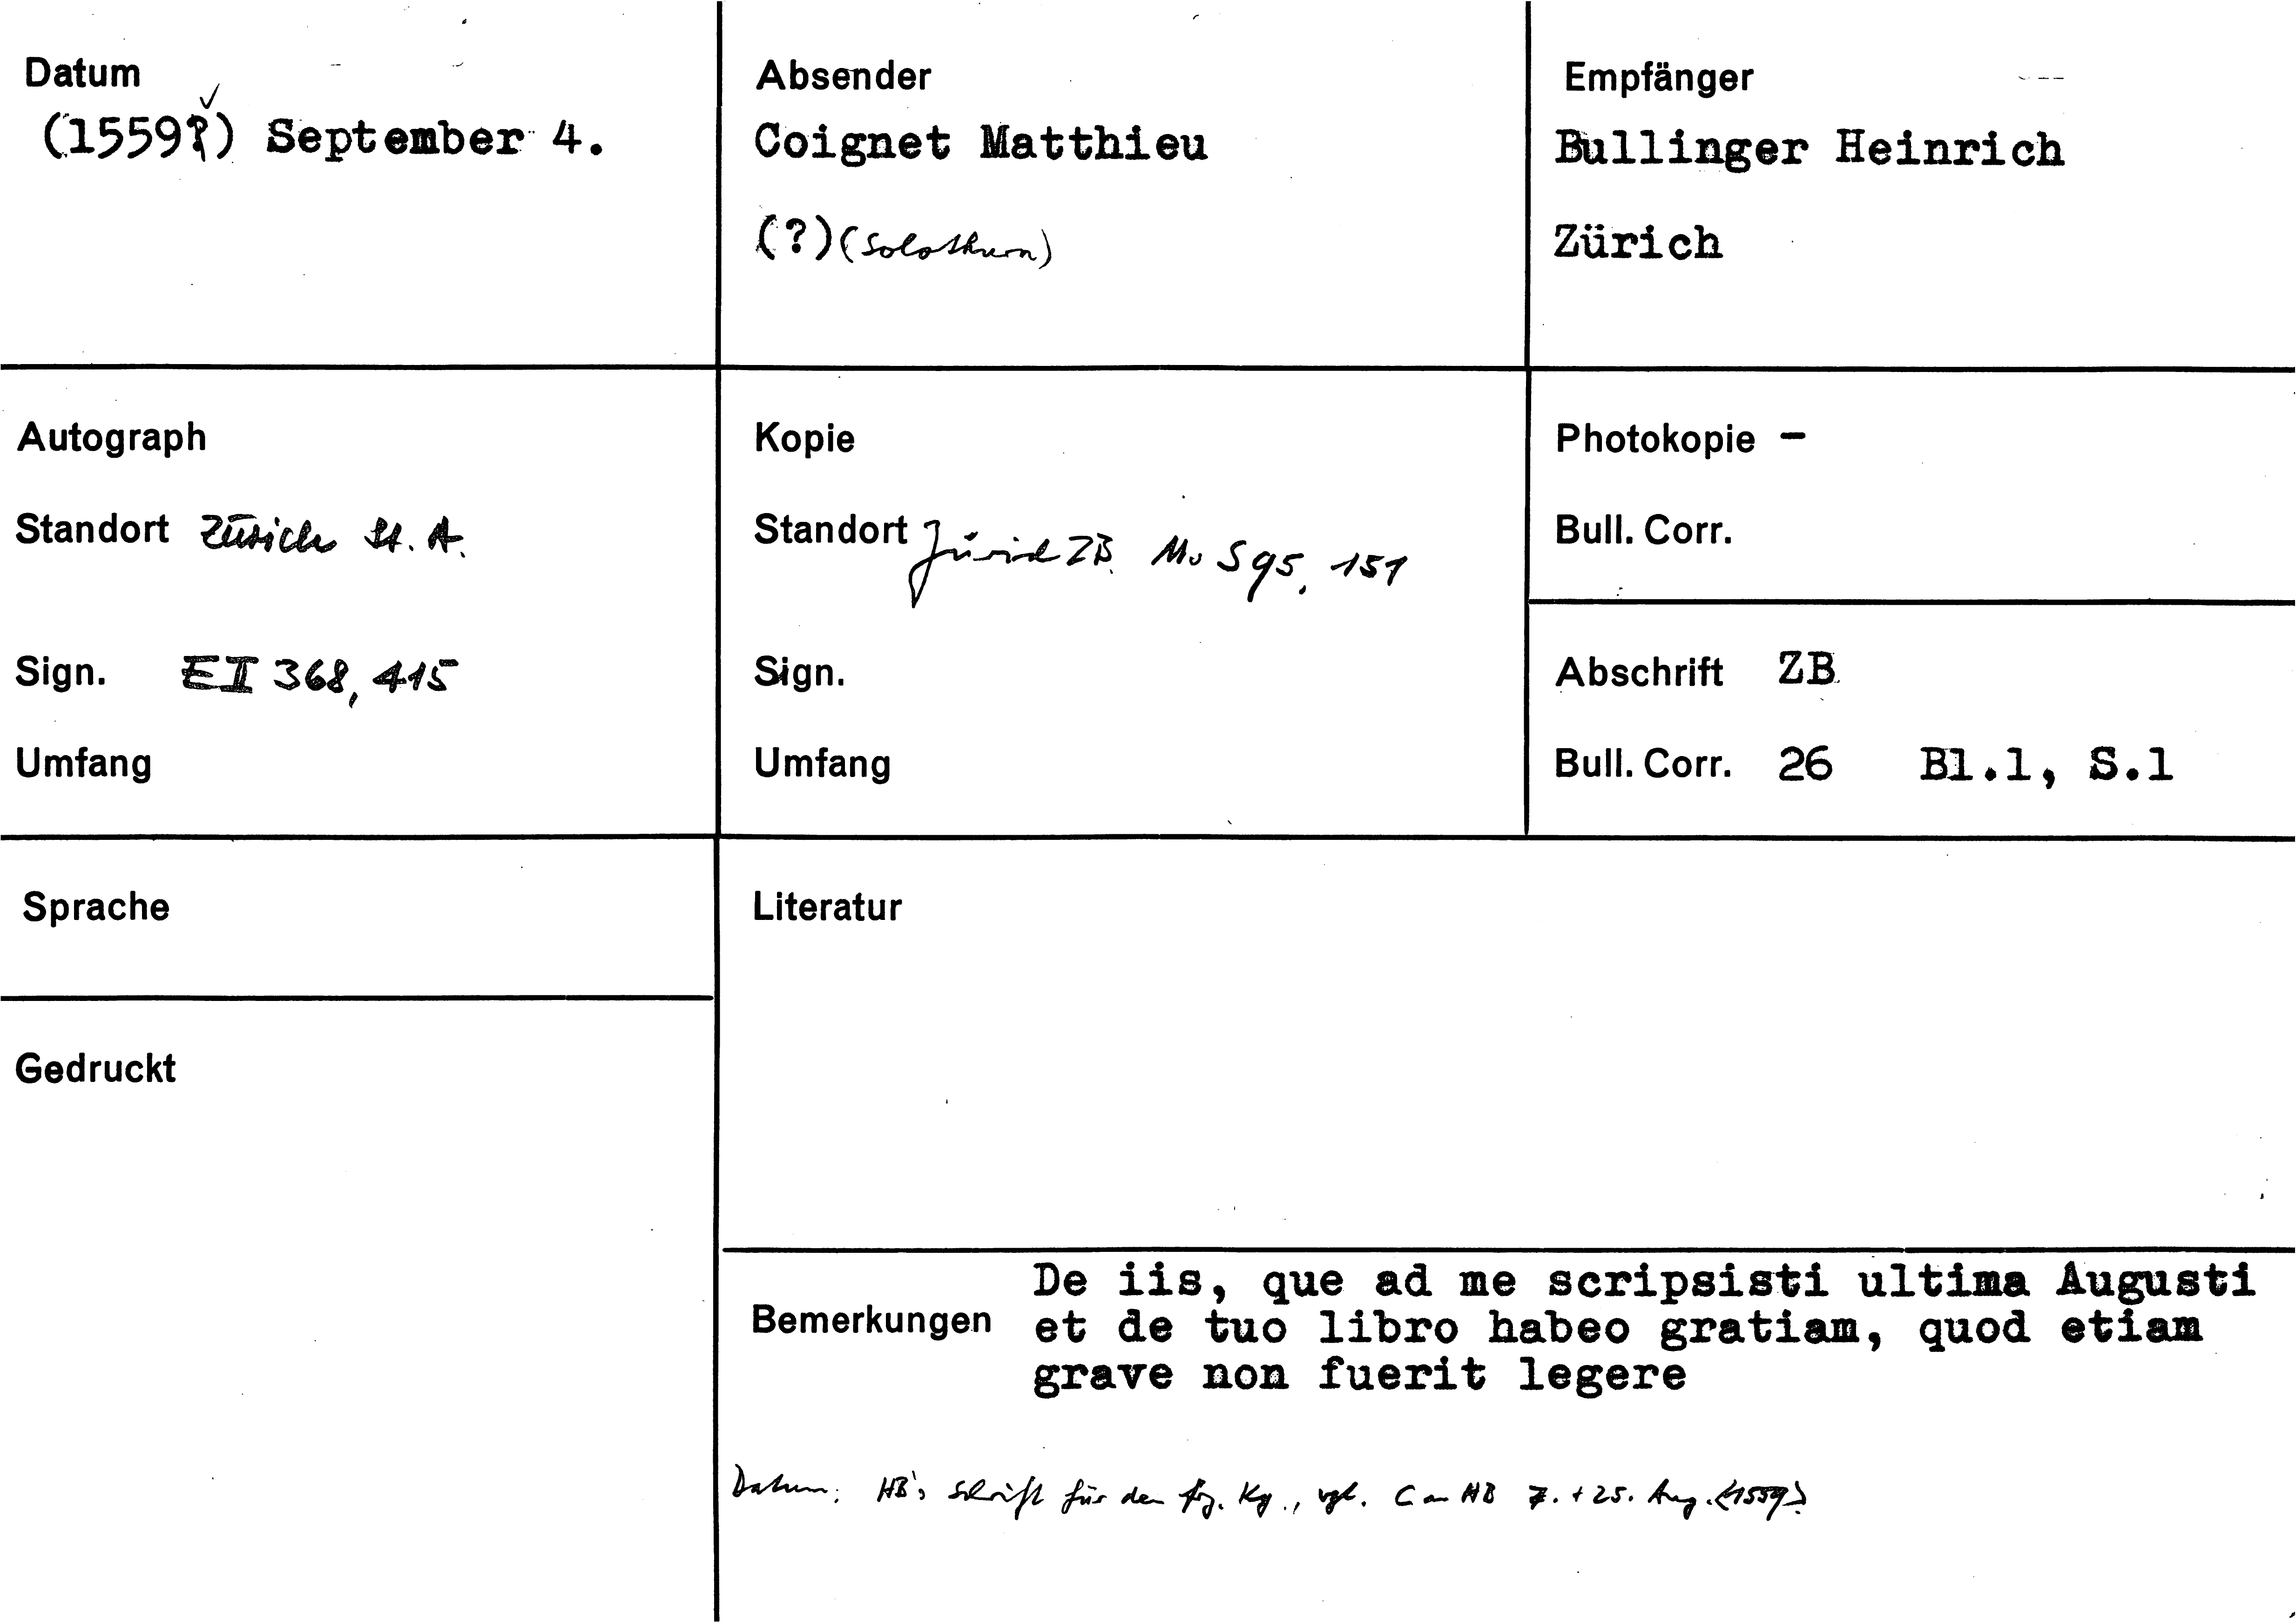 Datum
(1559?) September 4.
Absender
Coignet Matthieu
(?) (Solothurn)
Empfänger
Bullinger Heinrich
Zürich
Autograph
Standort Zürich St. A.
Sign. E II 368, 415
Umfang
Kopie
Standort Zürich ZB. Ms S 95, 151
Sign.
Umfang
Photokopie –
Bull. Corr.
Abschrift ZB
Bull. Corr. 26 Bl.1, S.1
Sprache
Gedruckt
Literatur
Bemerkungen
De iis, que ad me scripsisti ultima Augusti
et de tuo libro habeo gratiam, quod etiam
grave non fuerit legere
Datum: HB's Schrift für den frz. Kg., vgl. C an HB 7. + 25. Aug. <1559>